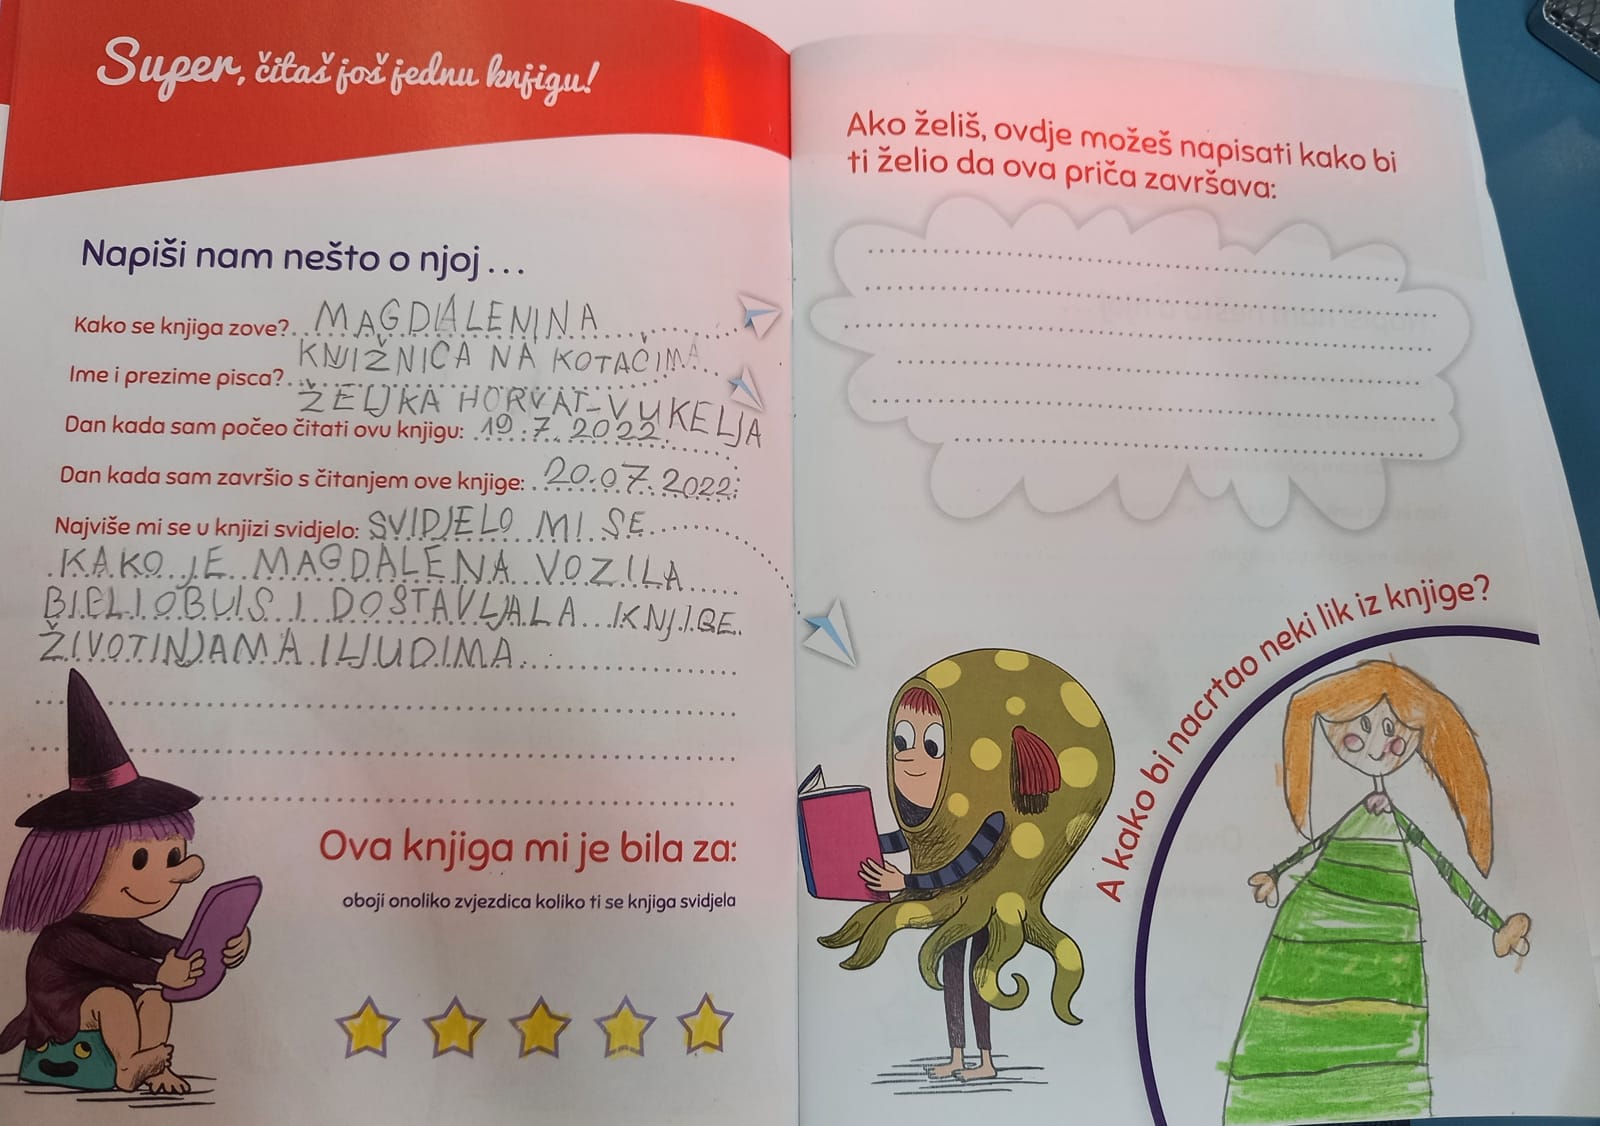 Super, čitaš još jednu knjigu!
Napiši nam nešto o njoj...
Kako se knjiga zove? MAGDALENINA
KNJIŽNICA NA KOTAČIMA
Ime i prezime pisca?
ŽELJKA HORVAT-VUKELJA
Dan kada sam počeo čitati ovu knjigu: 19.7.2022.
Dan kada sam završio s čitanjem ove knjige: 20.07.2022.
Najviše mi se u knjizi svidjelo: SVIDJELO MI SE
KAKO JE MAGDALENA VOZILA
BIBLIOBUS I DOSTAVLJALA KNJIGE
ŽIVOTINJAMA I LJUDIMA.
Ova knjiga mi je bila za:
oboji onoliko zvjezdica koliko ti se knjiga svidjela
Ako želiš, ovdje možeš napisati kako bi
ti želio da ova priča završava:
A kako bi nacrtao neki lik iz knjige?